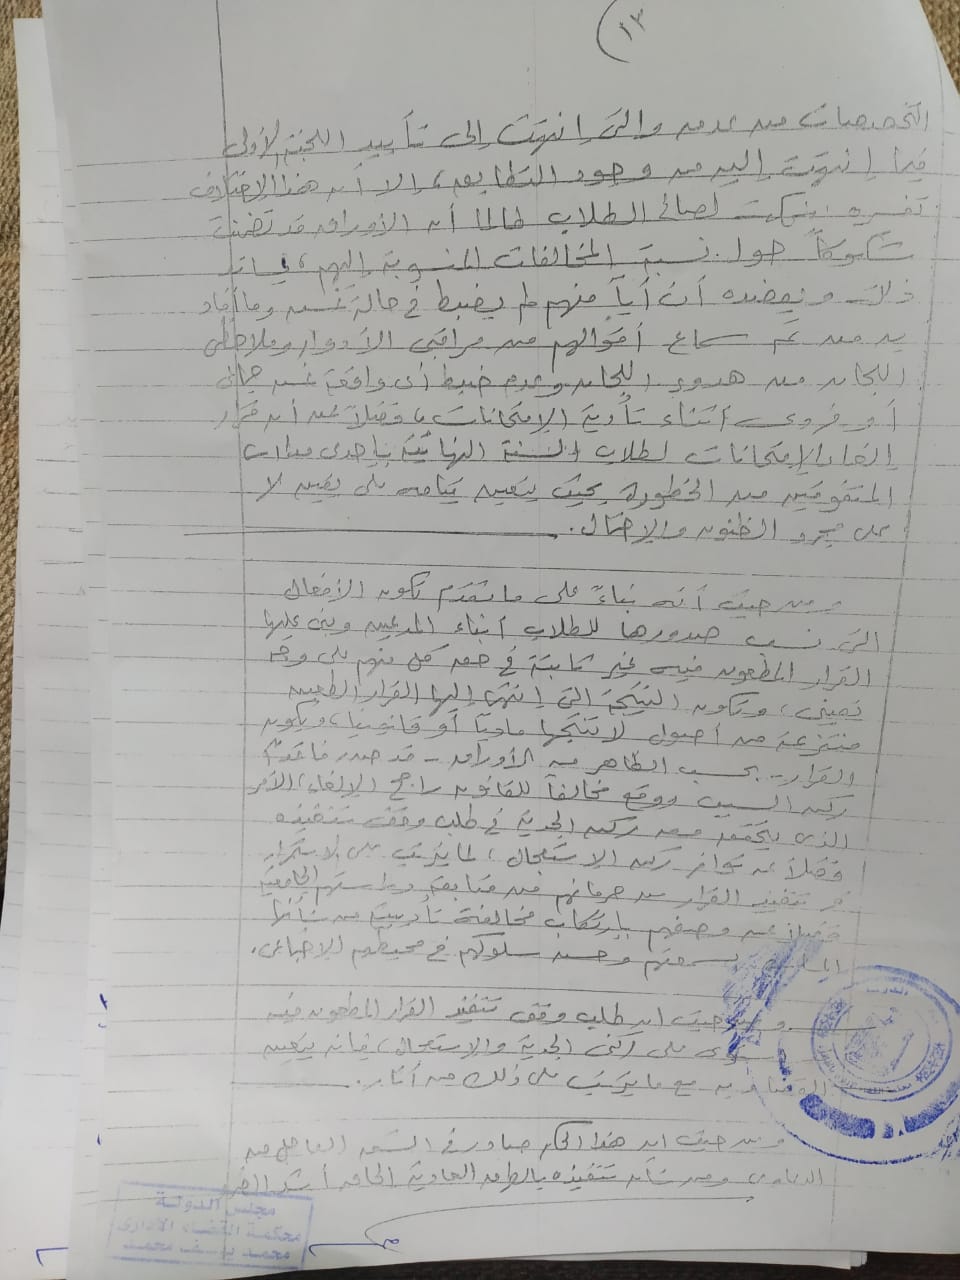 (١٣)
التخصصات من عدمه والتى إنتهت إلى تأييد اللجنة الأولى
فيما إنتهت إليه من وجود التطابق، إلا أن هذا الإختلاف
تفسره لصالح الطلاب طالما أن الأوراق قد تضمنت
شكوكاً حول نسبة المخالفات المنسوبة إليهم،
ذلك ويعضده أن أياً منهم لم يضبط فى حالة غش وما أفاد
به من تم سماع أقوالهم من مراقبى الأدوار وملاحظى
اللجان من هدوء اللجان وعدم ضبط أى واقعة غش جماعى
أو فردى أثناء تأدية الإمتحانات، فضلاً عن أن قرار
إلغاء الإمتحانات لطلاب السنة النهائية بإحدى مدارس
المتفوقين من الخطورة بحيث يتعين قيامه على يقين لا
على مجرد الظنون والإحتمال.
ومن حيث أنه بناءً على ما تقدم تكون الأفعال
التى نسب صدورها للطلاب أبناء المدعين وبنى عليها
القرار المطعون فيه غير ثابتة فى حق كل منهم على وجه
يقينى، وتكون النتيجة التى إنتهى إليها القرار الطعين
منتزعة من أصول لا تنتجها مادياً أو قانونياً، ويكون
القرار - بحسب الظاهر من الأوراق - قد صدر فاقداً
ركن السبب ووقع مخالفاً للقانون راجح الإلغاء، الأمر
الذى يتحقق معه ركن الجدية فى طلب وقف تنفيذه
فضلاً عن توافر ركن الاستعجال، لما يترتب على الاستمرار
فى تنفيذ القرار من حرمانهم من متابعة دراستهم الجامعية
فضلاً عن وصفهم بإرتكاب مخالفة تأديبية من شأنها
بسمعتهم وحسن سلوكهم فى محيطهم الإجتماعى.
ومن حيث إن طلب وقف تنفيذ القرار المطعون فيه
على ركنى الجدية والإستعجال، فإنه يتعين
القضاء به مع ما يترتب على ذلك من آثار.
ومن حيث إن هذا الحكم صادر فى الشق العاجل من
الدعاوى ومن شأن تنفيذه بالطرق العادية إلحاق أشد الضرر
مجلس الدولة
محكمة القضاء الإدارى
محمد يوسف محمد